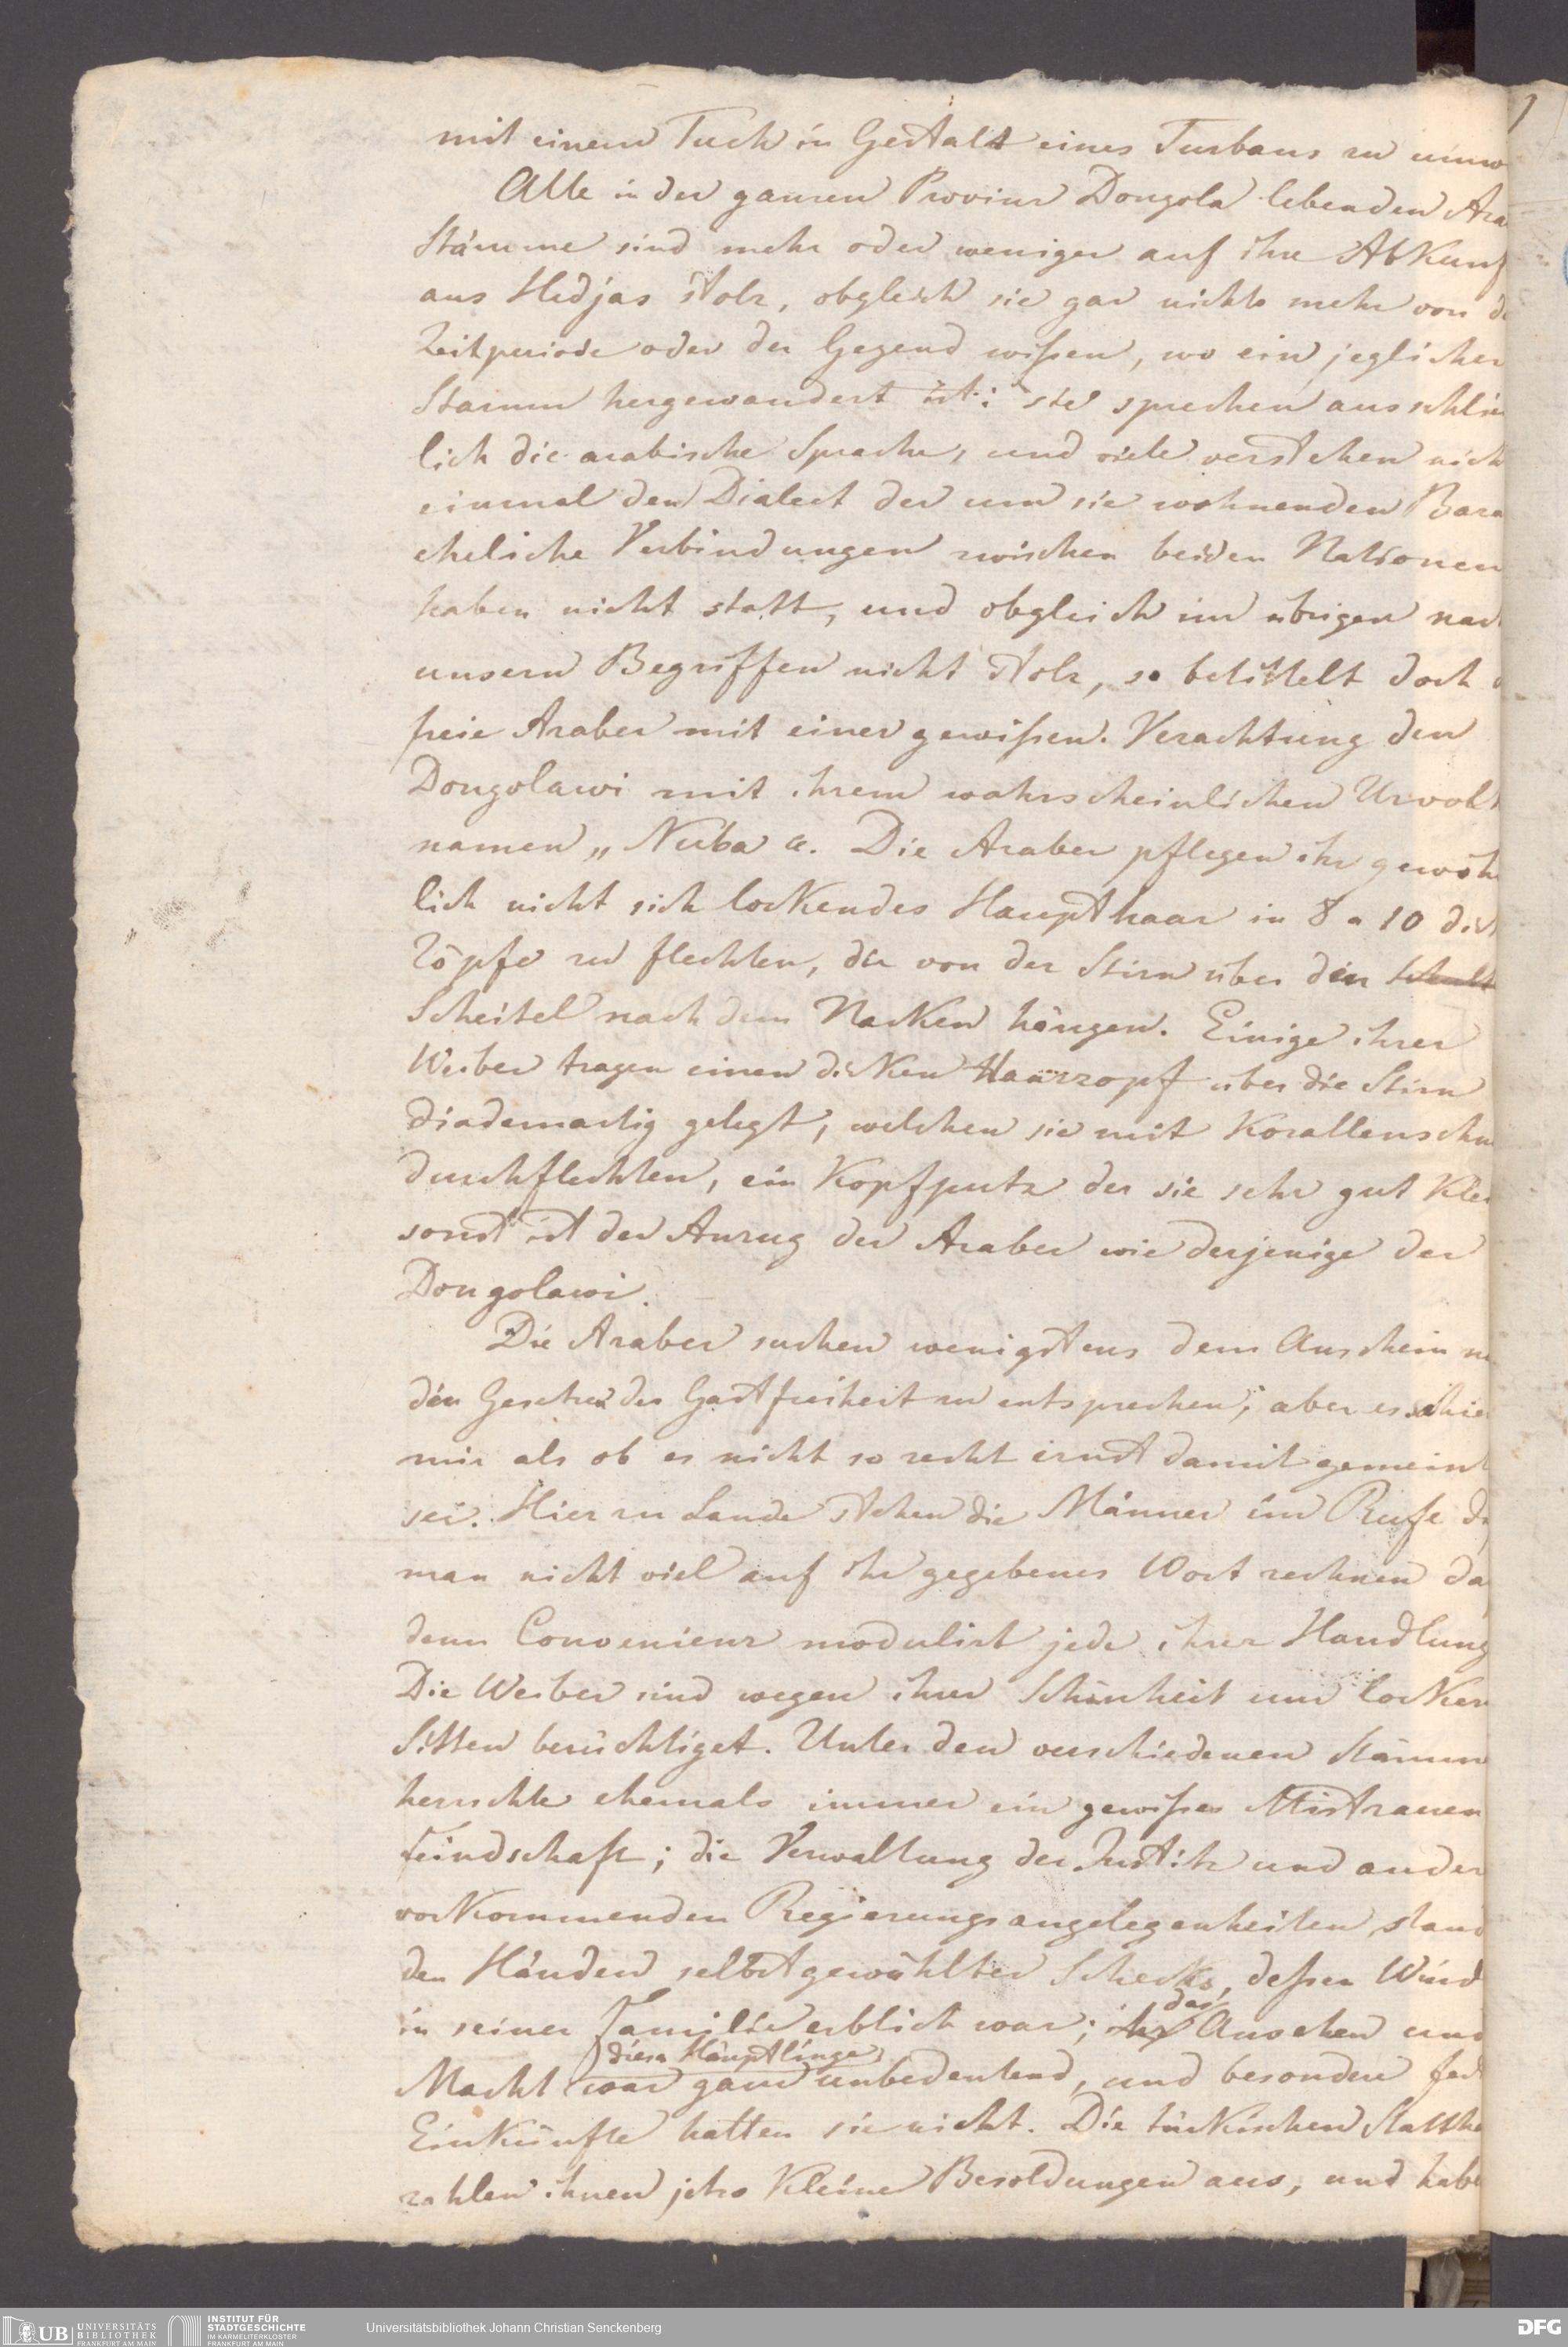 mit einem Tuch in Gestalt eines Turbans zu umw
Alle in der ganzen Provinz Dongola lebenden Ara
Stämme sind mehr oder weniger auf ihre Abkunf
aus Hedjas stolz, obgleich sie gar nichts mehr von d
Zeitperiode oder der Gegend wißen, wo ein jeglicher
Stamm hergewandert ist: sie sprechen ausschlie
lich die arabische Sprache, und viele verstehen nich
einmal den Dialect der um sie wohnenden Bara
eheliche Verbindungen zwischen beiden Nationen
haben nicht statt, und obgleich im übrigen nach
unsern Begriffen nicht stolz, so betittelt doch d
freie Araber mit einer gewißen Verachtung den
Dongolawi mit ihrem wahrscheinlichen Urvolk
namen „Nuba“. Die Araber pflegen ihr gewöh
lich nicht sich lockendes Haupthaar in 8 a 10 dick
Zöpfe zu flechten, die von der Stirn über den Schult
Scheitel nach dem Nacken hängen. Einige ihrer
Weiber tragen einen dicken Haarzopf über die Stirn
diademartig gelegt, welchen sie mit Korallenschn
durchflechten, ein Kopfputz der sie sehr gut klei
sonst ist der Anzug der Araber wie derjenige der
Dongolawi.
Die Araber suchen wenigstens dem Anschein na
den Gesetzen der Gastfreiheit zu entsprechen; aber es schie
mir als ob es nicht so recht ernst damit gemeint
sei. Hier zu Lande stehen die Männer im Rufe d
man nicht viel auf ihr gegebenes Wort rechnen da
denn Convenienz modulirt jede ihrer Handlung
Die Weiber sind wegen ihrer Schönheit und locker
Sitten berüchtiget. Unter den verschiedenen Stämm
herrschte ehemals immer ein gewißes Mistrauen
Feindschaft; die Verwaltung der Justitz und ander
vorkommenden Regierungsangelegenheiten stand
den Händen selbstgewählter Scheks, deßen Würd
in seiner Familie erblich war; ihr das Ansehen und
Macht dieser Häuptlinge war ganz unbedeutend, und besondere fest
Einkünfte hatten sie nicht. Die türkischen Statthal
zahlen ihnen jetzo kleine Besoldungen aus, und habe
UB UNIVERSITÄTS BIBLIOTHEK FRANKFURT AM MAIN
INSTITUT FÜR STADTGESCHICHTE IM KARMELITERKLOSTER FRANKFURT AM MAIN
Universitätsbibliothek Johann Christian Senckenberg
DFG